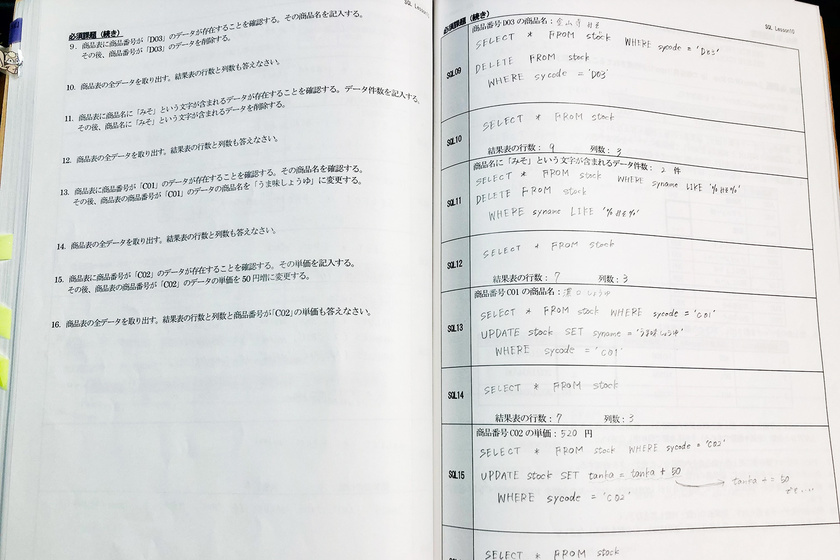 SQL Lesson10
必須課題(続き)
9. 商品表に商品番号が「D03」のデータが存在することを確認する。その商品名を記入する。
その後、商品番号が「D03」のデータを削除する。
10. 商品表の全データを取り出す。結果表の行数と列数も答えなさい。
11. 商品表に商品名に「みそ」という文字が含まれるデータが存在することを確認する。データ件数を記入する。
その後、商品名に「みそ」という文字が含まれるデータを削除する。
12. 商品表の全データを取り出す。結果表の行数と列数も答えなさい。
13. 商品表に商品番号が「C01」のデータが存在することを確認する。その商品名を確認する。
その後、商品表の商品番号が「C01」のデータの商品名を「うま味しょうゆ」に変更する。
14. 商品表の全データを取り出す。結果表の行数と列数も答えなさい。
15. 商品表に商品番号が「C02」のデータが存在することを確認する。その単価を記入する。
その後、商品表の商品番号が「C02」のデータの単価を50円増に変更する。
16. 商品表の全データを取り出す。結果表の行数と列数と商品番号が「C02」の単価も答えなさい。
SQL Lesson10
必須課題(続き)
商品番号D03の商品名:金山寺
SQL09
SELECT * FROM stock WHERE sycode = 'D03'
DELETE FROM stock
WHERE sycode = 'D03'
SQL10
SELECT * FROM stock
結果表の行数: 9 列数: 3
商品名に「みそ」という文字が含まれるデータ件数: 2 件
SQL11
SELECT * FROM stock WHERE syname LIKE '%みそ%'
DELETE FROM stock
WHERE syname LIKE '%みそ%'
SQL12
SELECT * FROM stock
結果表の行数: 7 列数: 3
商品番号C01の商品名: 濃口しょうゆ
SQL13
SELECT * FROM stock WHERE sycode = 'C01'
UPDATE stock SET syname = 'うま味しょうゆ'
WHERE sycode = 'C01'
SQL14
SELECT * FROM stock
結果表の行数: 7 列数: 3
商品番号C02の単価: 520 円
SQL15
SELECT * FROM stock WHERE sycode = 'C02'
UPDATE stock SET tanka = tanka + 50
tanka += 50
WHERE sycode = 'C02'
SELECT * FROM stock